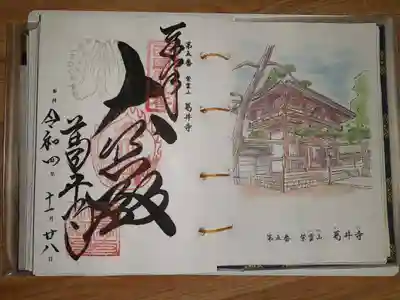 第五番 紫雲山 葛井寺
奉拝
大悲殿
葛井寺
令和四年十一月廿八日
第五番 紫雲山 葛井寺